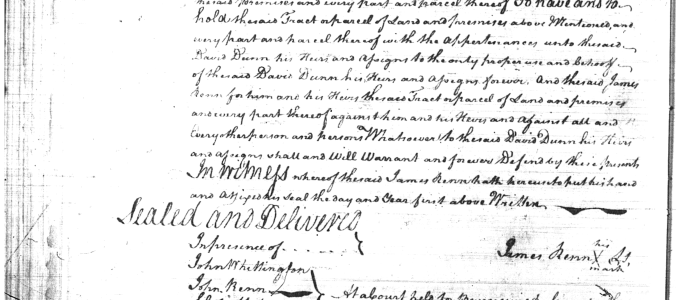 the said premises and every part and parcel thereof To have and to
hold the said Tract or parcel of Land and premises above Mentioned, and
every part and parcel thereof with the Appertenances unto the said
David Dunn his Heirs and Assigns to the only proper use and behoof
of the said David Dunn his Heirs and Assigns forever. And the said James
Renn for him and his Heirs the said Tract or parcel of Land and premises
and every part thereof against him and his Heirs and against all and
Every other person and persons Whatsoever to the said David Dunn his Heirs
and Assigns shall and Will Warrant and forever Defend by these presents
In Witness whereof the said James Renn hath hereunto put his hand
and Affixed his Seal the day and year first above Written
Sealed and Delivered
In presence of
James Renn his X mark
John Whittington
John Renn
At a Court held